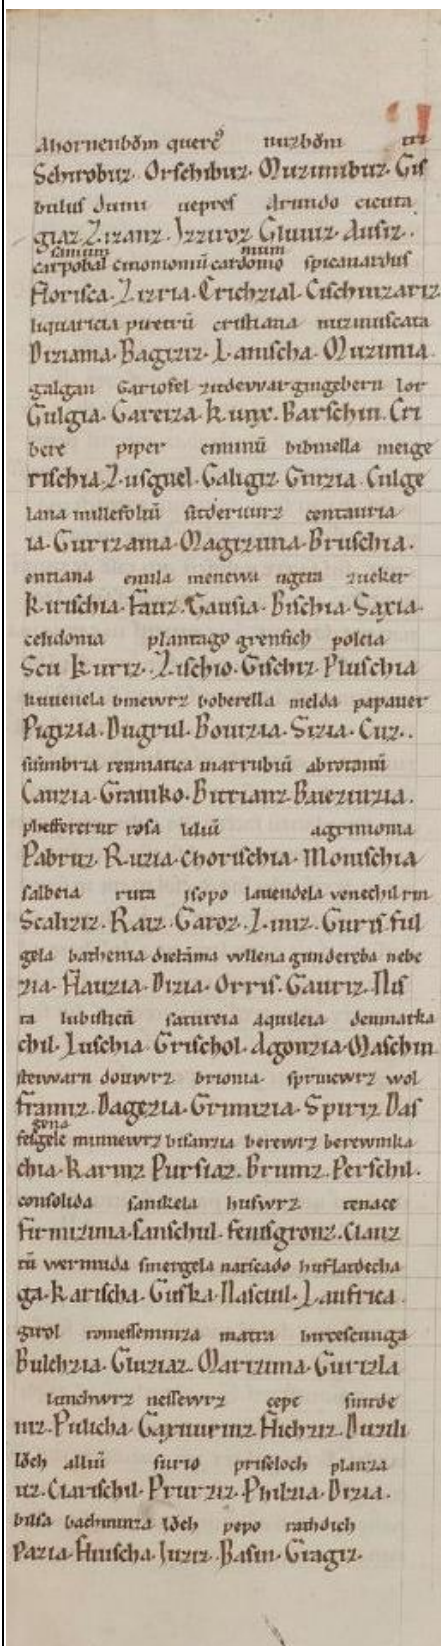 Ahornenbōm querc⁹ nuzbōm tri
Schirobuz. Orschibuz. Muzimibuz. Gis
bulus dumi uepres Arundo cicuta
giaz. Zizanz. Izziroz. Gluuiz. Ausiz.
samum mum
carpobal cinomomū cardomo spicanardus
florisca. Zizria. Crichzial. Cischiuzariz
liquaricia piretrū cristiana nuzmuscata
Diziama. Bagiziz. Lanischa. Muzimia.
galgan Gariofel zitdewar gingebern lor
Gulgia. Gareiza. Kunx. Barschin. Cri
bere piper cuminū bibinella meige
rischia. Zusguel. Galigiz. Ginzia. Culge
lana millefoliū sitderwrz centauria
ia. Gurizama. Magizima. Bruschia.
entiana enula menewa ugera zucker
Kirischia. Fauz. Gausia. Bischia. Saxia.
celidonia plantago grensich poleia
Scu. Kuriz. Zischio. Gischiz. Pluschia
kuuenela binewrz boberella melda papauer
Pigizia. Dugrul. Bouizia. Sizia. Cuz.
siumbria reumatica marrubiū abrotanū
Cauzia. Gramko. Birrianz. Baiezinzia.
pheffercrut rosa liliū agrimonia
Pabruz. Ruzia. Chorischia. Monischia
salbeia ruta isopo lauendela venechil rin
Scaliziz. Raiz. Garoz. Liniz. Guris. ful
gela bathenia dictāma wllena gundereba nebe
zia. Hauzia. Dizia. Orris. Gauriz. Nis
ta lubisticū satureia aquileia denmarka
chil. Luschia. Grischol. Agonzia. Maschin
steinvarn douwrz brionia sprinewrz wol
franiz. Dagezia. Grinizia. Spiriz. Das
gena
fesgele minnewrz bisanzia berewrz berewinka
chia. Karinz. Pursiaz. Briunz. Perschil.
consolida sanikela huswrz tenace
firmizima. sanschul. fenisgronz. Clauz
tū wermuda smergela narscado huflatdecha
ga. Karischa. Guska. Nasciul. Laufrica.
girol romessemminza matra hirceszunga
Bulchzia. Gluziaz. Marizima. Gurizla
lunchwrz nessewrz cepe snitde
niz. Pulicha. Gaxuurinz. Hichziz. Duzili
lōch alliū surio priseloch planza
uz. Clarischil. Prurziz. Philzia. Dizia.
bilsa bachminza lōch pepo ratdich
Pazia. Hiuscha. Iuziz. Basin. Gragiz.